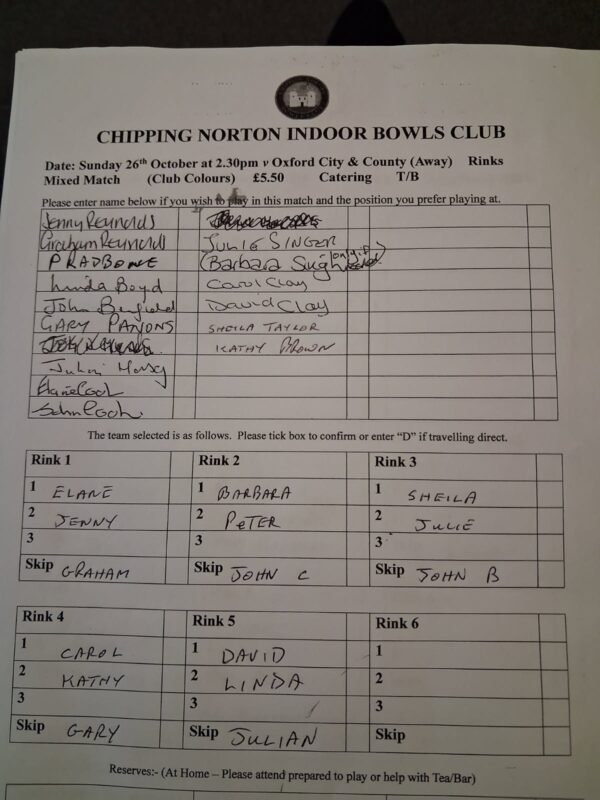 CHIPPING NORTON INDOOR BOWLS CLUB
Date: Sunday 26th October at 2.30pm v Oxford City & County (Away) Rinks
Mixed Match (Club Colours) £5.50 Catering T/B
Please enter name below if you wish to play in this match and the position you prefer playing at.
Jenny Reynolds
Graham Reynolds JULIE SINGER
P RADBONE (Barbara Singh only if needed)
Linda Boyd Carol Clay
John David Clay
GARY SHEILA TAYLOR
KATHY BROWN
Julian
Elaine Cook
John Cook
The team selected is as follows. Please tick box to confirm or enter "D" if travelling direct.
Rink 1 Rink 2 Rink 3
1 ELANE 1 BARBARA 1 SHEILA
2 JENNY 2 PETER 2 JULIE
3 3 3
Skip GRAHAM Skip JOHN C Skip JOHN B
Rink 4 Rink 5 Rink 6
1 CAROL 1 DAVID 1
2 KATHY 2 LINDA 2
3 3 3
Skip GARY Skip JULIAN Skip
Reserves:- (At Home – Please attend prepared to play or help with Tea/Bar)